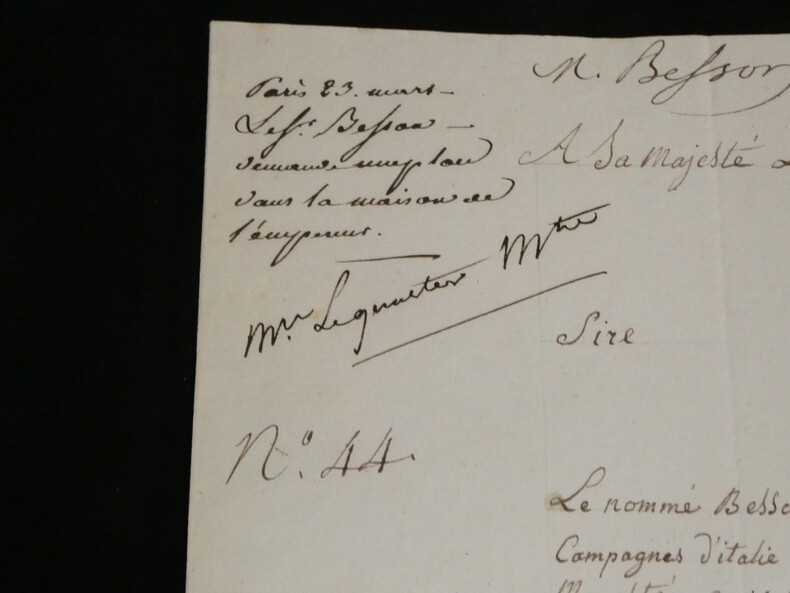 M. Besson
Paris 23. mars
Le Sr. Besson
demande une place
dans la maison de
l'empereur.
Mr. Mtre
A Sa Majesté
Sire
N.º 44.
Le nommé Besso
Campagnes d'italie